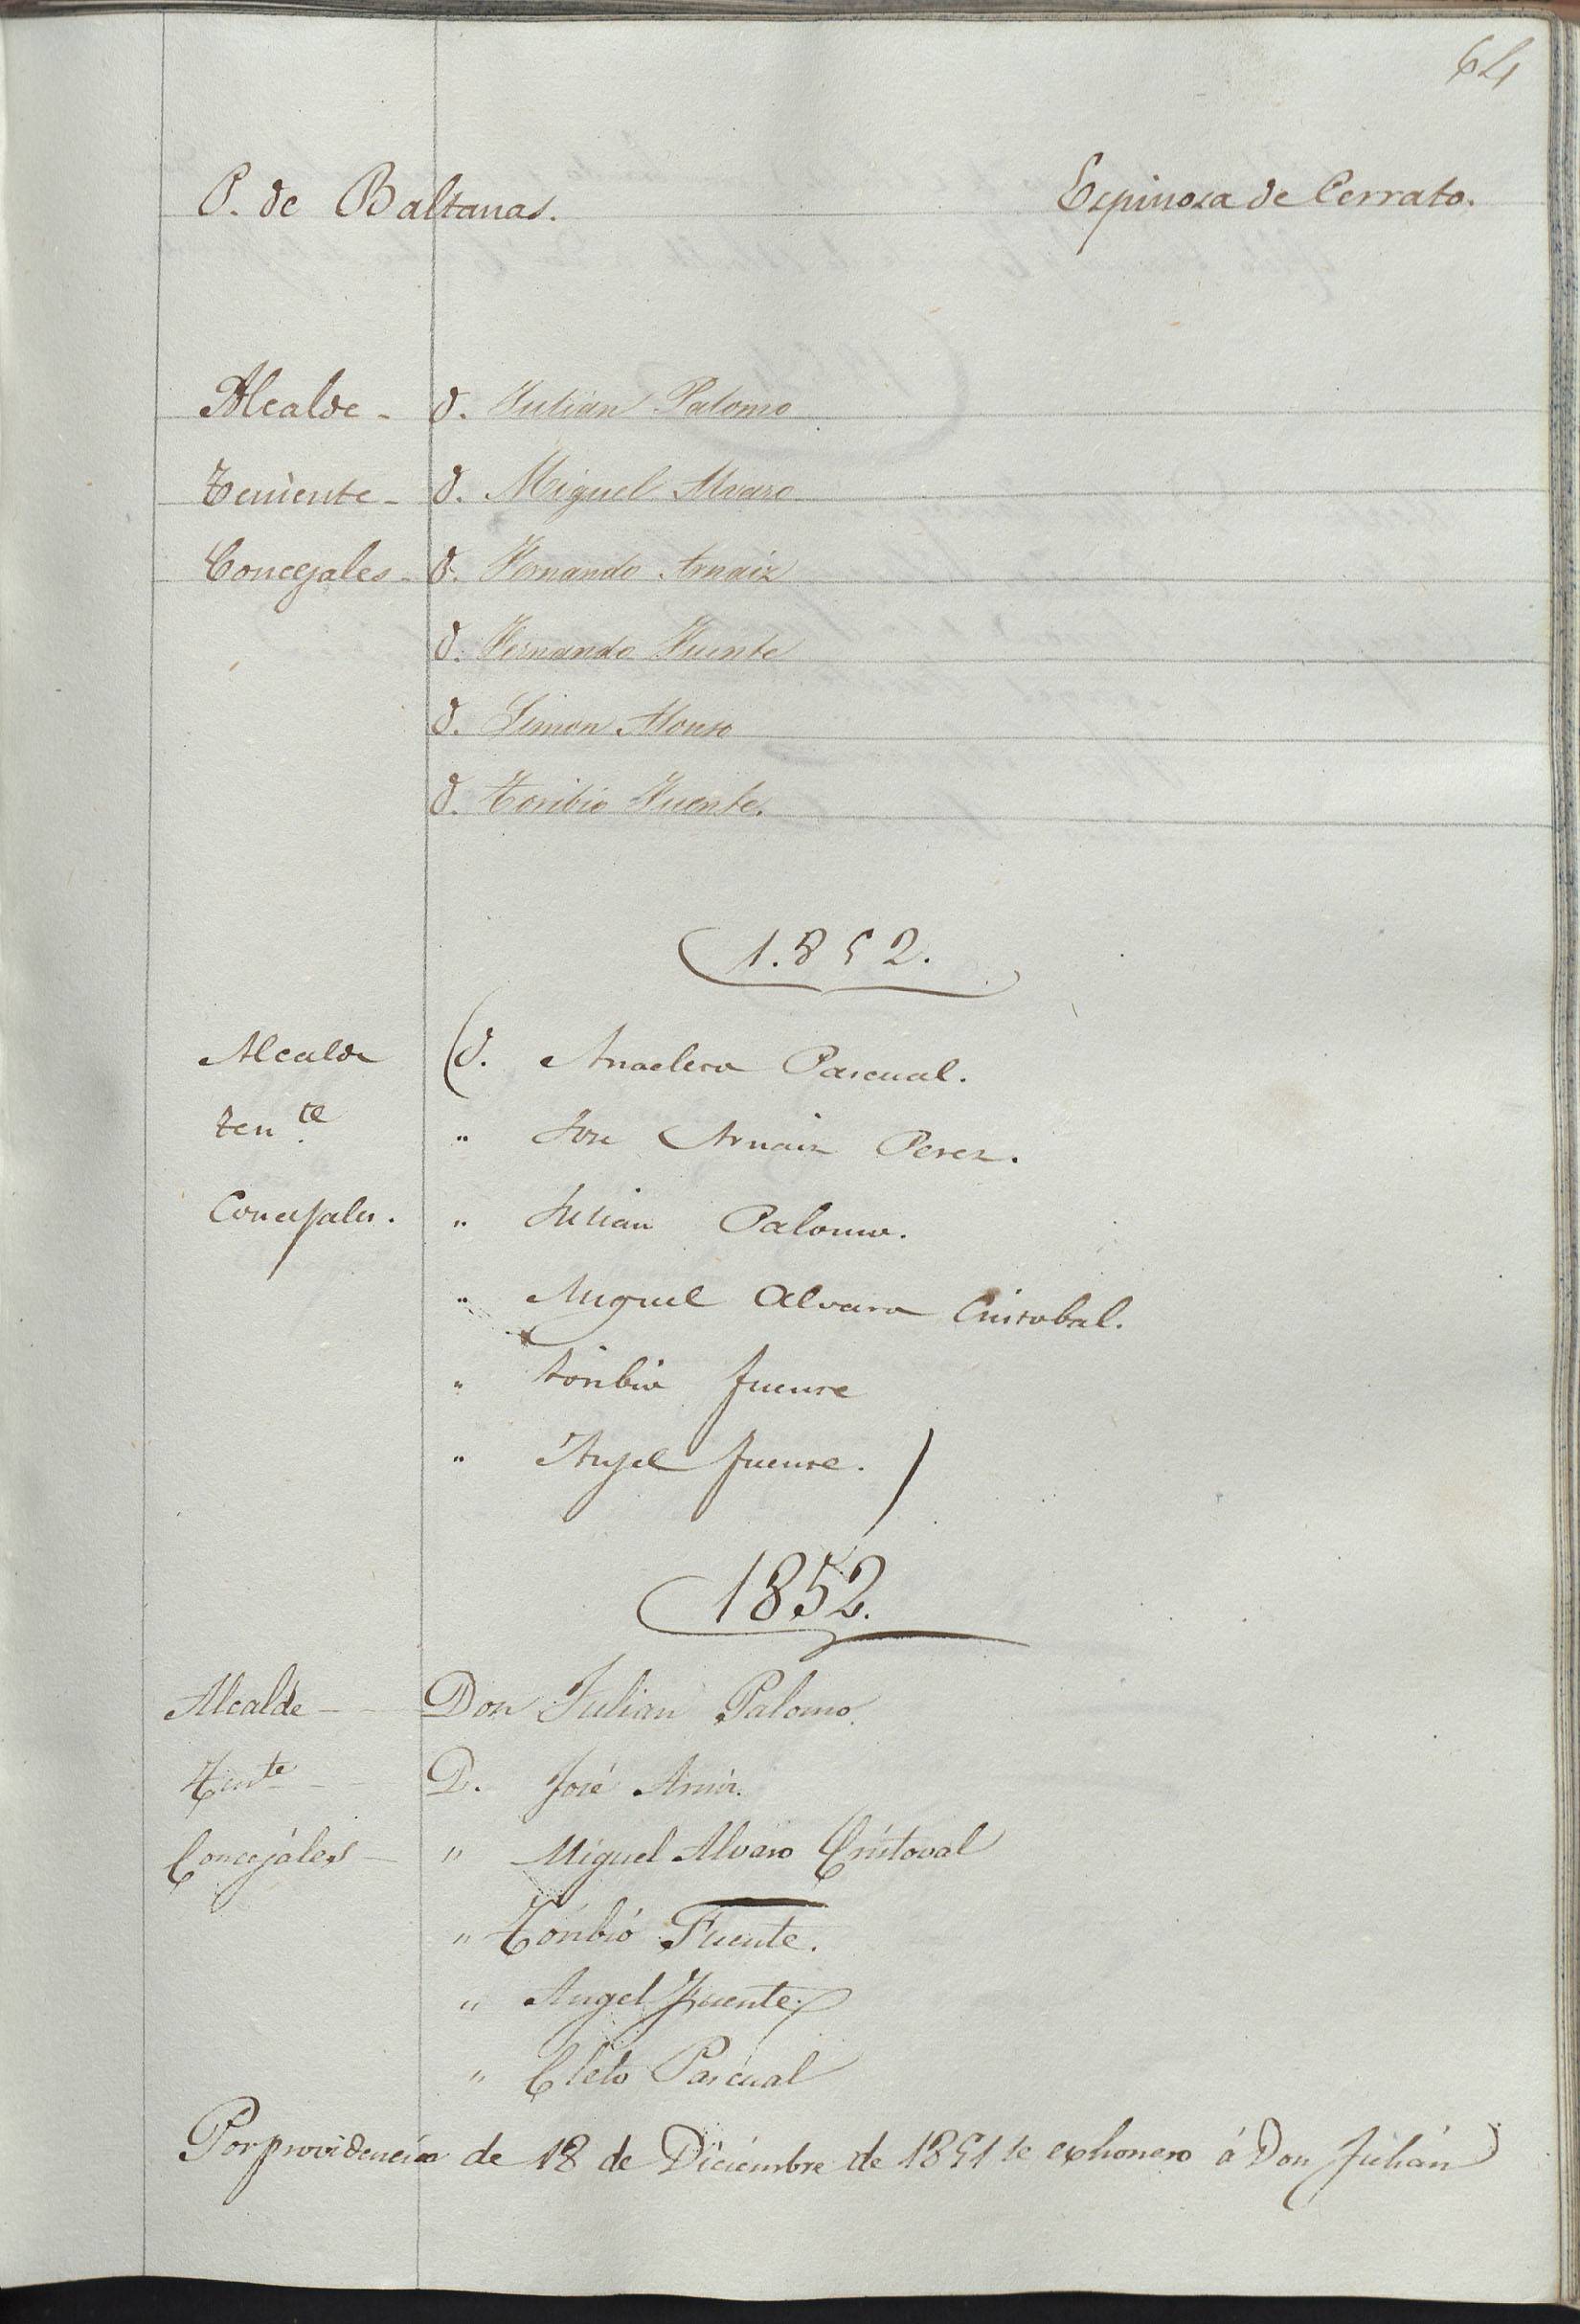 64
P. de Baltanas.
Espinosa de Cerrato.
Alcalde - D. Julian Palomo
Teniente - D. Miguel Alvaro
Concejales - D. Fernando Arnaiz
D. Fernando Fuente
D. Simon Alonso
D. Toribio Fuente.
1.852.
Alcalde (D. Anacleto Pascual.
Ten.te " Jose Arnaiz Perez.
Concejales. " Julian Palomo.
" Miguel Alvaro Cristobal.
" Toribio fuente
" Angel fuente.)
1852.
Alcalde - - Don Julian Palomo
Tente - - D. José Arnaiz.
Concejáles - " Miguel Alvaro Cristoval
" Toribio Fuente.
" Angel Fuente.
" Cleto Pascual
Por providencia de 18 de Diciembre de 1851 se exhonero á Don Julián